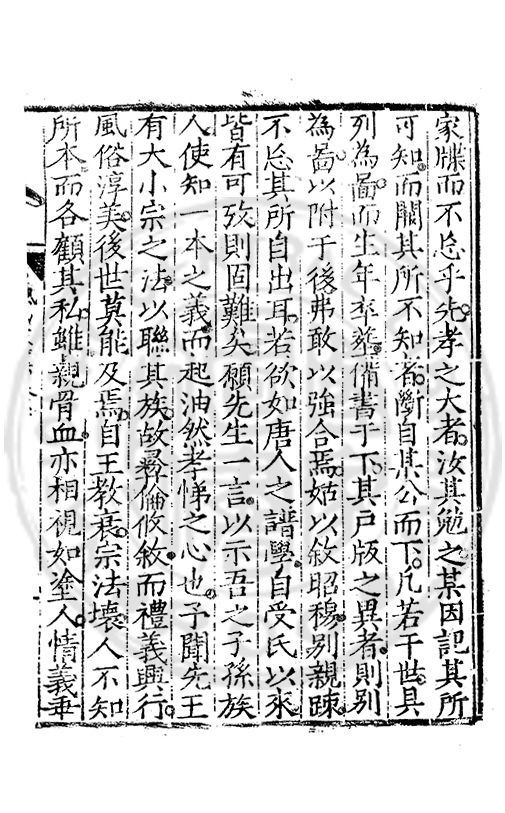 家牒而不忘乎先孝之大者汝其勉之某因記其所
可知而闕其所不知者斷自某公而下凡若干世具
列為啚而生年卒塟備書于下其戸版之異者則別
為啚以附于後弗敢以強合焉姑以敘昭穆別親踈
不忘其所自出耳若欲如唐人之譜學自受氏以來
皆有可攷則固難矣願先生一言以示吾之子孫族
人使知一本之義而起油然孝悌之心也予聞先王
有大小宗之法以聯其族故彛倫攸敘而禮義興行
風俗淳美後世莫能及焉自王教衰宗法壞人不知
所本而各顧其私雖親骨血亦相視如塗人情義乖